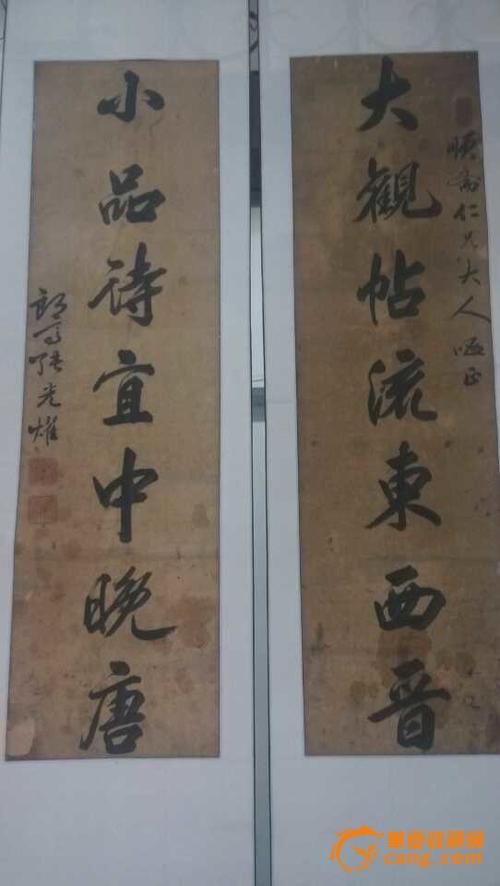 大觀帖流東西晉
仁兄大人哂正
小品詩宜中晚唐
張光
華夏收藏網
cang.com